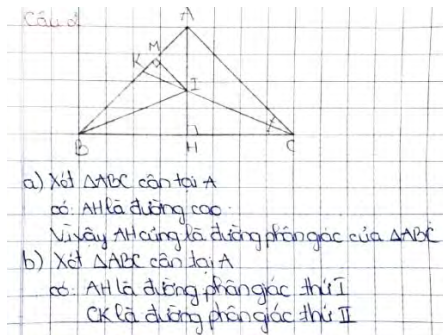 Câu 2
A
M
K
I
B
H
C
a) Xét ΔABC cân tại A
có: AH là đường cao.
Vì vậy AH cũng là đường phân giác của ΔABC
b) Xét ΔABC cân tại A
có: AH là đường phân giác thứ I
CK là đường phân giác thứ II